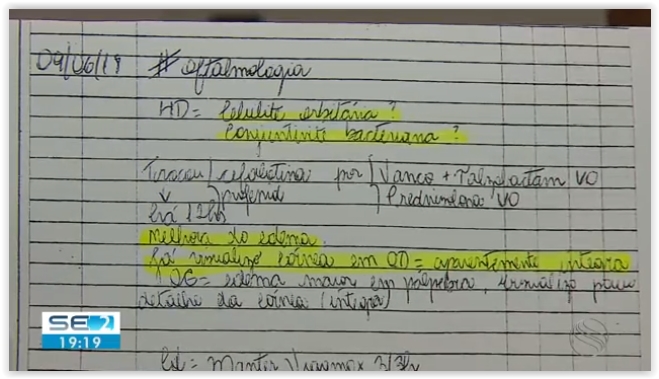 09/06/19 # oftalmologia
HD = Celulite orbitária ?
Conjuntivite bacteriana ?
Trocou / cefalotina por / Vanco + Tazobactam VO
profenid Prednisolona VO
há 12hs
Melhora do edema
Já visualizo córnea em OD = aparentemente íntegra
OE = edema maior em pálpebra, visualizo pouco
detalhe da córnea (íntegra)
Cd = Manter Vigamox 3/3h
SE 2
19:19